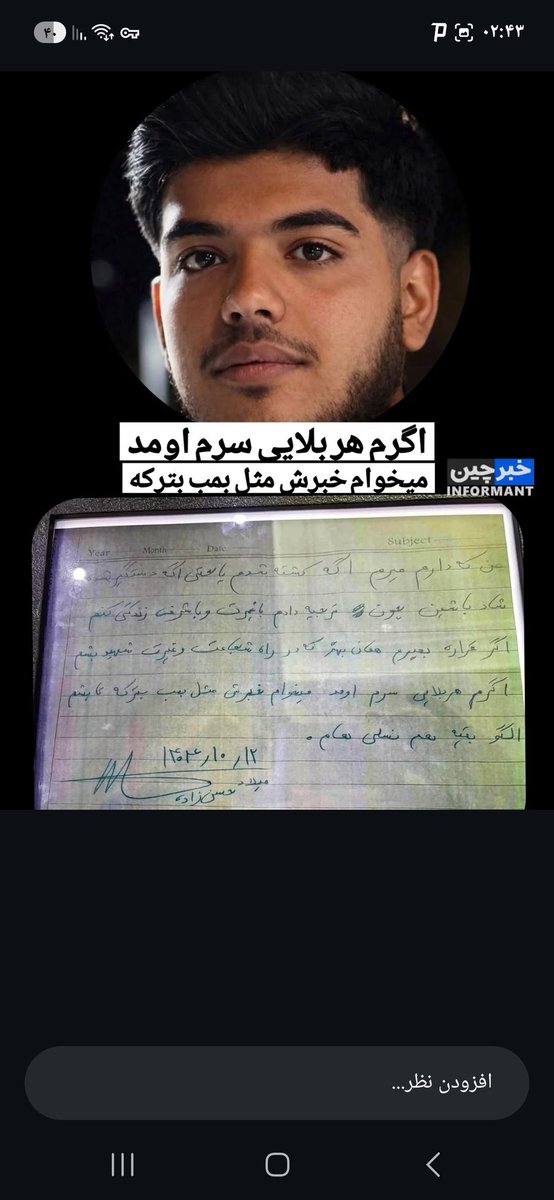 ۴۰
۰۲:۴۳
اگرم هر بلایی سرم اومد
میخوام خبرش مثل بمب بترکه
خبرچین
INFORMANT
Year Month Date Subject
من که دارم میرم اگه کشته شدم یا حتی اگه دستگیر شدم
شاد باشین چون ترجیه دادم باغیرت و باشرفت زندگی کنم
اگر قراره بمیرم همان بهتر که در راه شجاعت و غیرت شهید بشم
اگرم هر بلایی سرم اومد میخوام خبرش مثل بمب بترکه تا بشم
الگو بقیه هم نسلی هام.
۱۴۰۴/۱۰/۱۲
میلاد
حسن زاده
افزودن نظر...